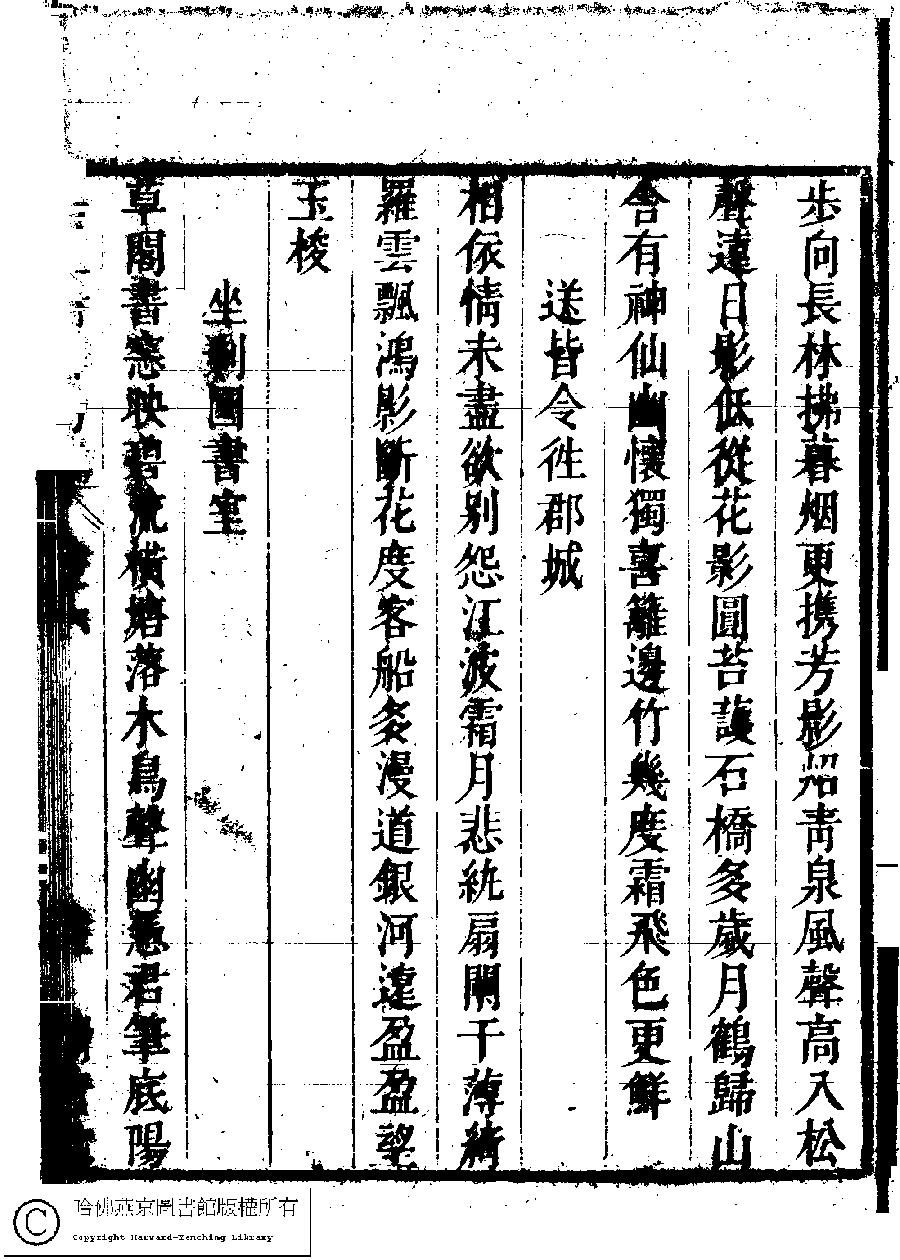 步向長林拂暮烟更携芳影炤青泉風聲高入松
聲遠日影低從花影圓苔護石橋多歲月鶴歸山
舍有神仙幽懷獨喜籬邊竹幾度霜飛色更鮮
送皆令徃郡城
相依情未盡欲別怨江波霜月悲紈扇闌干薄綺
羅雲飄鴻影斷花度客船多漫道銀河遠盈盈望
玉梭
坐剩圖書室
草閣書窓映碧流橫塘落木鳥聲幽憑君筆底陽
哈佛燕京圖書館版權所有
Copyright Harvard-Yenching Library